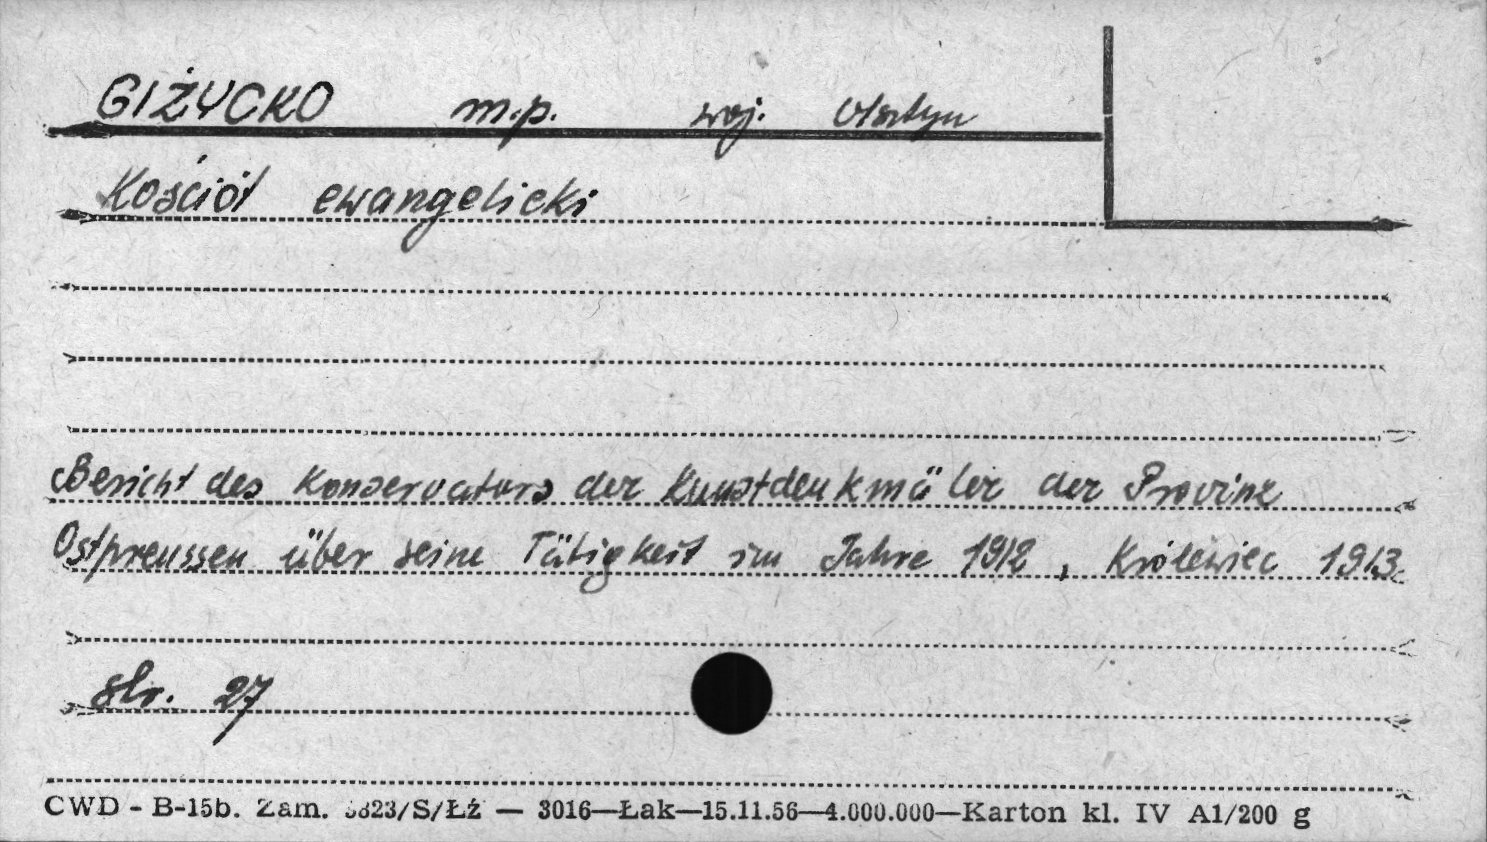 GIŻYCKO m.p. woj. Olsztyn
Kościół ewangelicki
Bericht des Konservators der Kunstdenkmäler der Provinz
Ostpreussen über seine Tätigkeit im Jahre 1912, Królewiec 1913
str. 27
CWD - B-15b. Zam. 5823/S/Łź — 3016—Łak—15.11.56—4.000.000—Karton kl. IV A1/200 g